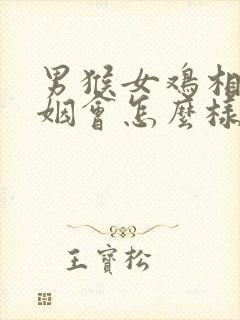 男猴女鸡相
姻會怎麼樣
王寶松